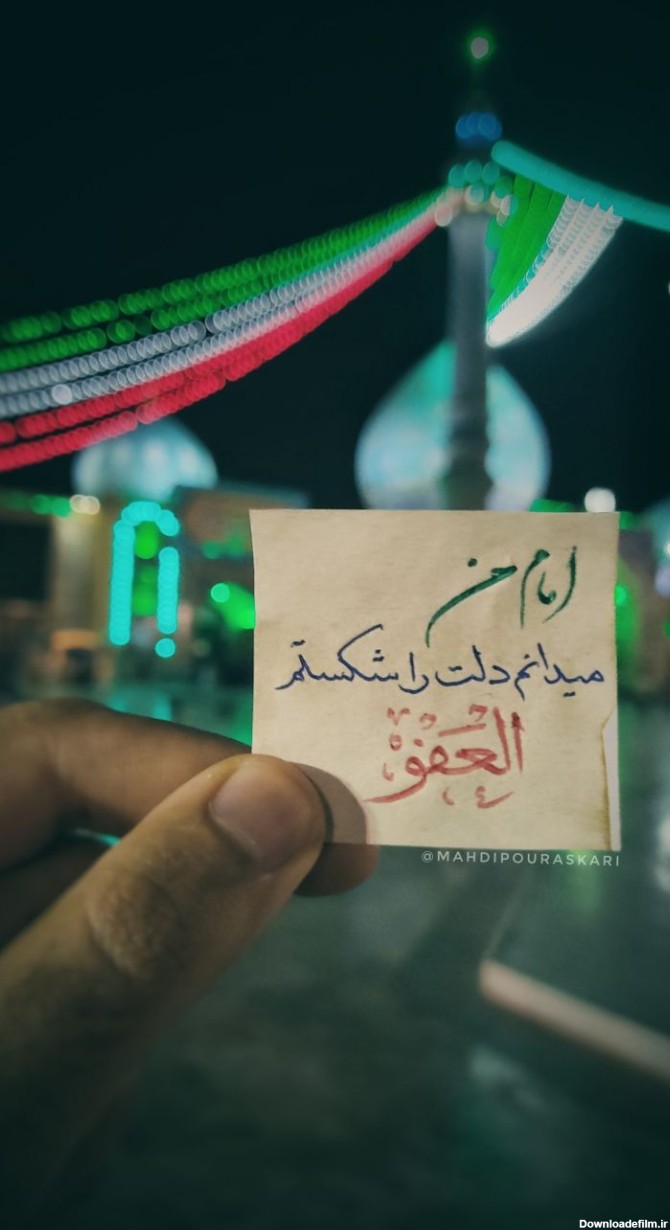 امام من
میدانم دلت را شکستم
العفو
@MAHDIPOURASKARI
Downloadefilm.ir